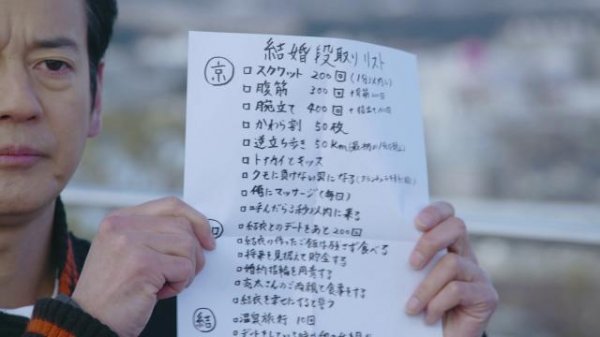 結婚段取りリスト
京
□ スクワット 200回
□ 腹筋 300回
□ 腕立て 400回
□ かわら割 50枚
□ 逆立ち歩き 50km
□ トナカイとキッス
□ クモに負けない男になる
□ 俺にマッサージ(毎日)
□ 呼んだら3秒以内に来る
□ 結衣とのデートをあと200回
□ 結衣の作ったご飯は残さず食べる
□ 将来を見据えて貯金する
□ 婚約指輪を用意する
□ 京太さんのご両親と食事をする
□ 結衣を幸せにすると誓う
結
□ 温泉旅行 10回